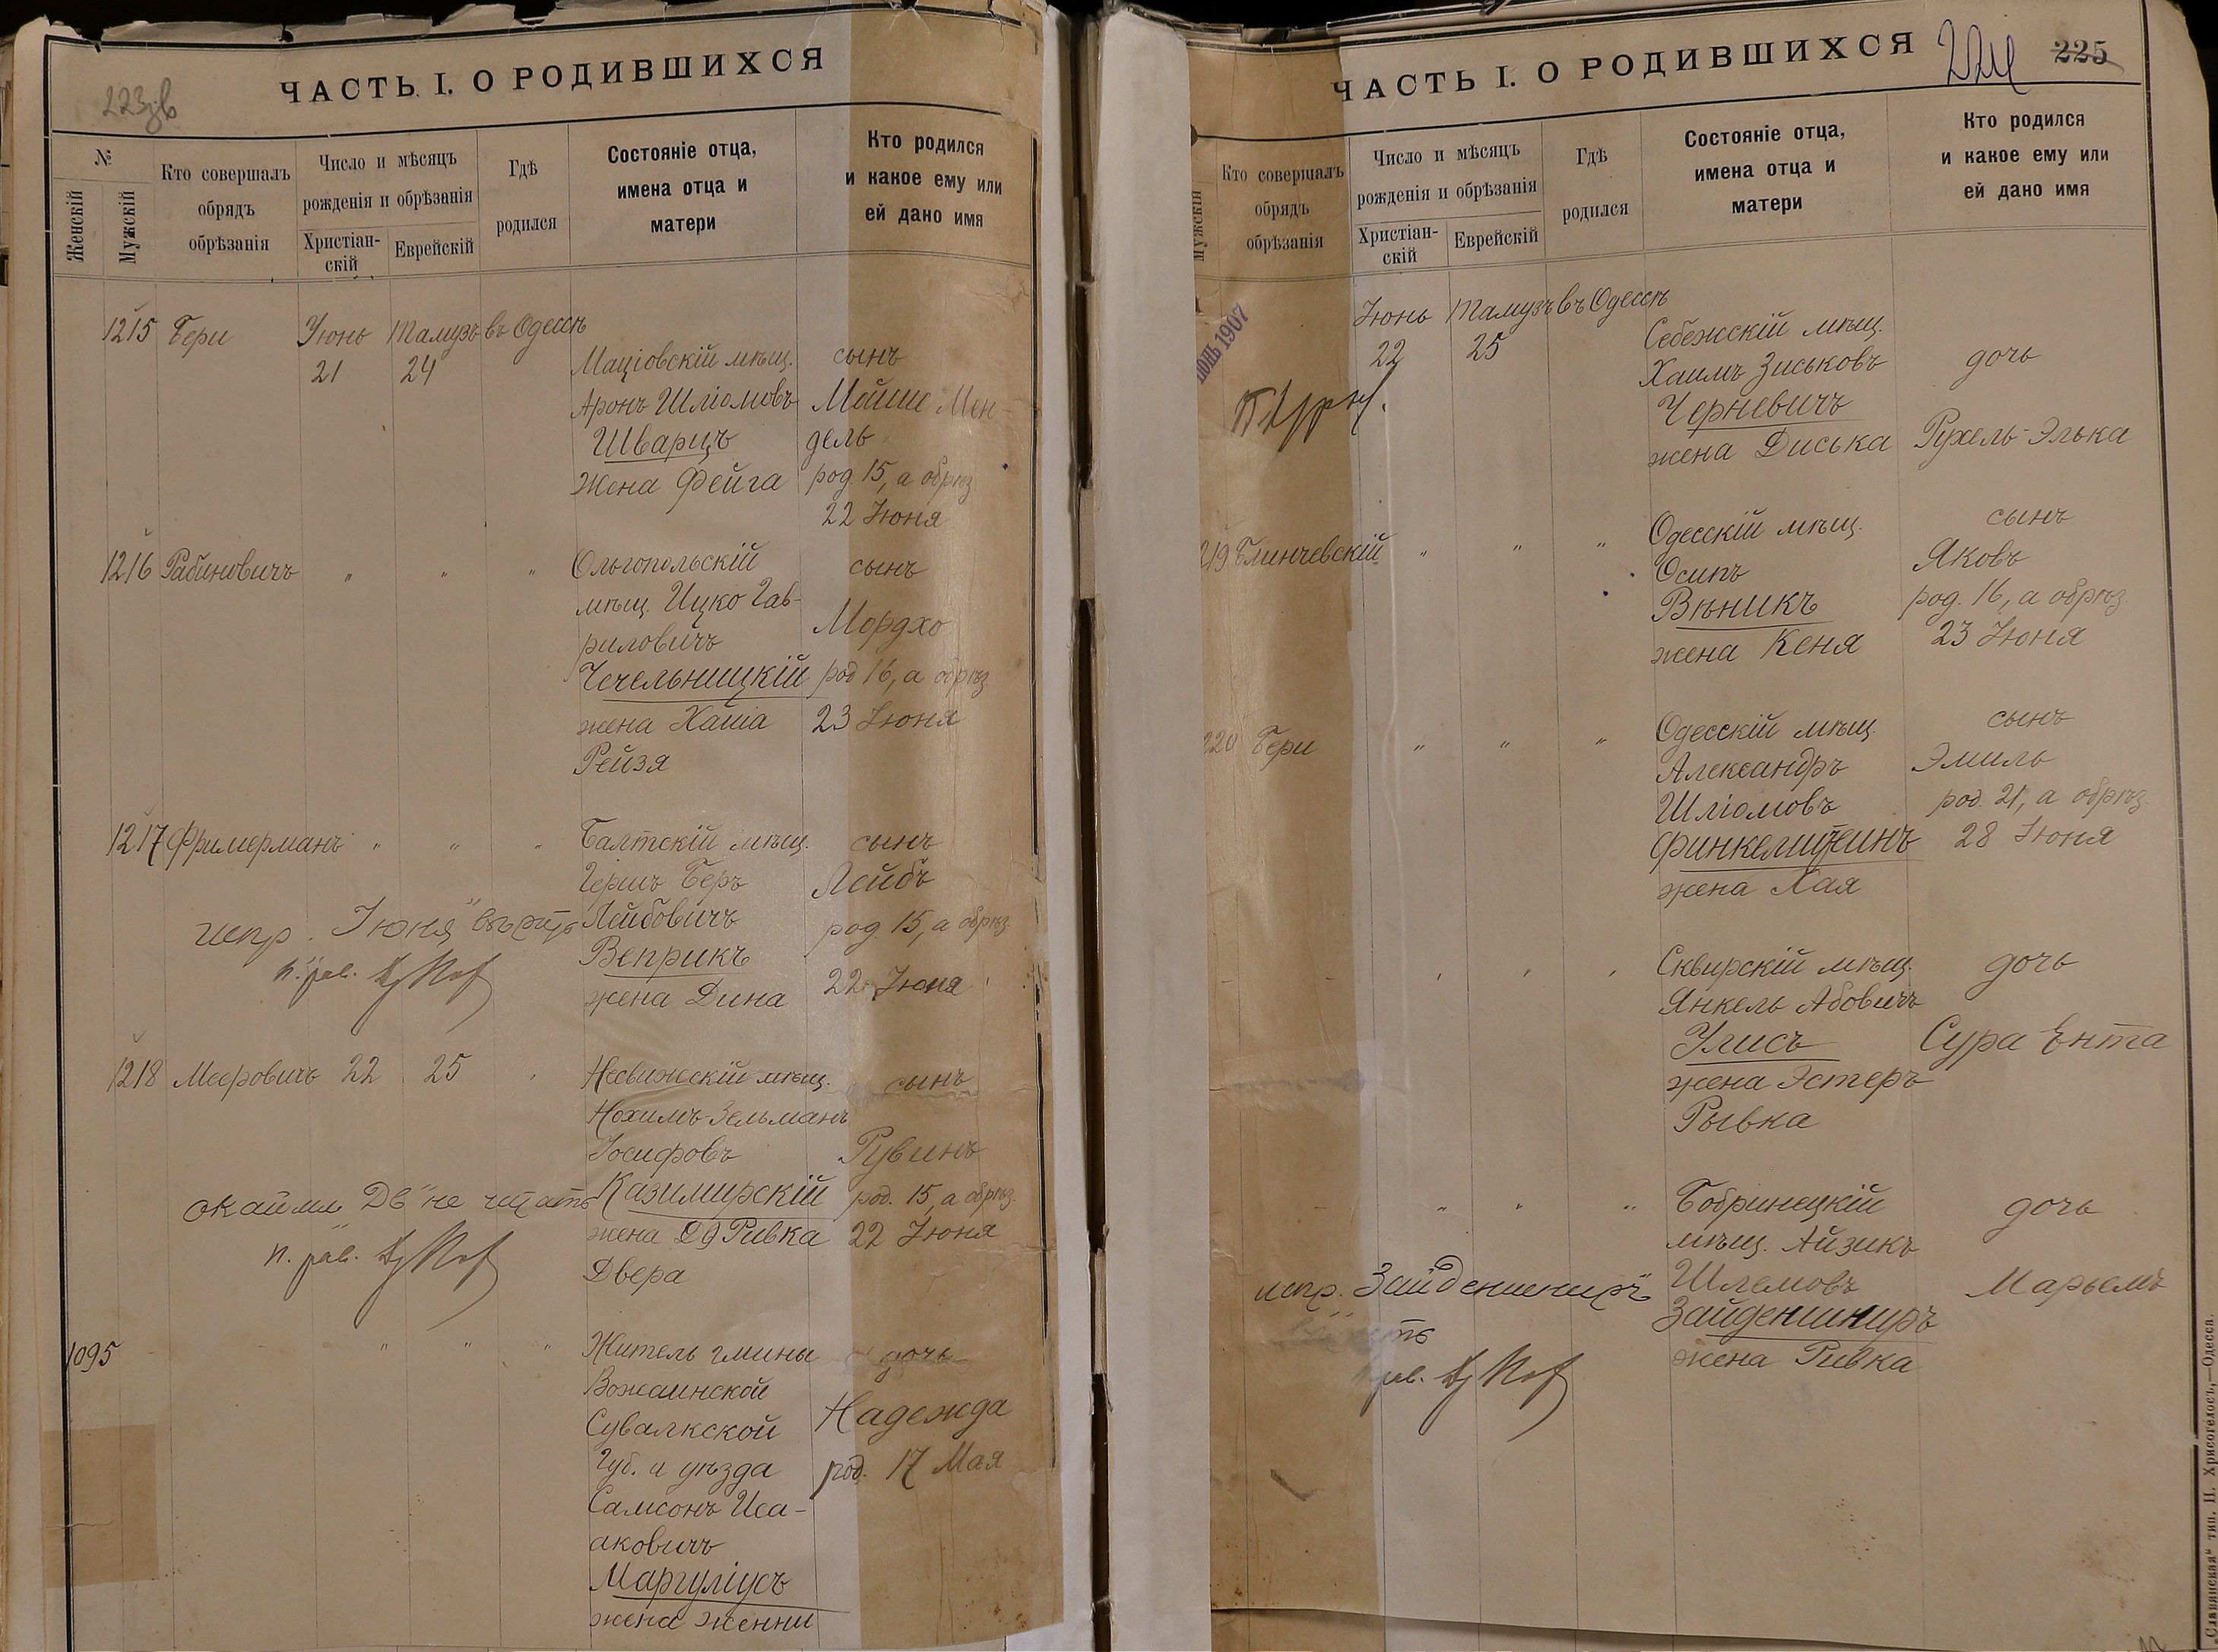 223 зв
ЧАСТЬ I. О РОДИВШИХСЯ
№
Женскій
Мужскій
Кто совершалъ
обрядъ
обрѣзанія
Число и мѣсяцъ
рожденія и обрѣзанія
Христіан-
скій
Еврейскій
Гдѣ
родился
Состояніе отца,
имена отца и
матери
Кто родился
и какое ему или
ей дано имя
1215 Бери Іюнь Тамузъ въ Одессѣ
21 24
Маціовскій мѣщ.
Аронъ Шліомовъ
Шварцъ
жена Фейга
сынъ
Мойше Мен-
дель
род. 15, а обрѣз
22 Іюня
1216 Рабиновичъ " " "
Ольгопольскій
мѣщ. Ицко Гав-
риловичъ
Чечельницкій
жена Хаиа
Рейзя
сынъ
Мордхо
род 16, а обрѣз.
23 Іюня
1217 Фримерманъ " " "
Балтскій мѣщ.
Гершъ Беръ
Лейбовичъ
Веприкъ
жена Дина
сынъ
Лейбъ
род. 15, а обрѣз.
22 Іюня
испр. "Іюня" вѣрить
п. рав.
1218 Мееровичъ 22 25
Несвижскій мѣщ.
Нохимъ-Зельманъ
Іосифовъ
Казимирскій
жена Дв Ривка
Двера
сынъ
Рувинъ
род. 15, а обрѣз.
22 Іюня
окаймл. "Дв" не читать
п. рав.
1095 " " "
Житель гмины
Вожаинской
Сувалкской
Губ. и уѣзда
Самсонъ Иса-
аковичъ
Маргуліусъ
жена Женни
дочь
Надежда
род. 17 Мая
ЧАСТЬ I. О РОДИВШИХСЯ
224
225
Мужскій
Кто совершалъ
обрядъ
обрѣзанія
Число и мѣсяцъ
рожденія и обрѣзанія
Христіан-
скій
Еврейскій
Гдѣ
родился
Состояніе отца,
имена отца и
матери
Кто родился
и какое ему или
ей дано имя
ІЮНЬ 1907
Іюнь Тамузъ въ Одессѣ
22 25
Себежскій мѣщ.
Хаимъ Зиськовъ
Черневичъ
жена Диська
дочь
Рухель-Элька
219 Блинчевскій " " "
Одесскій мѣщ.
Осипъ
Вѣникъ
жена Кеня
сынъ
Яковъ
род. 16, а обрѣз
23 Іюня
220 Бери " " "
Одесскій мѣщ.
Александръ
Шліомовъ
Финкелштейнъ
жена Хая
сынъ
Эмиль
род. 21, а обрѣз.
28 Іюня
Сквирскій мѣщ.
Янкель Абовичъ
Улисъ
жена Эстеръ
Рывка
дочь
Сура Ента
" " "
Бобринецкій
мѣщ. Айзикъ
Шлемовъ
Зайденшниръ
жена Ривка
дочь
Марьемъ
испр. "Зайденшниръ"
рав.
„Славянская“ тип. Н. Хрисогелосъ,—Одесса.